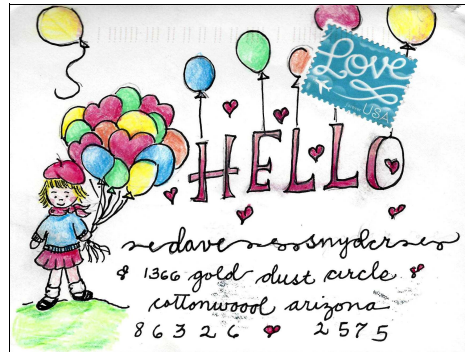 Love
USA
HELLO
dave snyder
1366 gold dust circle
cottonwoood arizona
86326 2575